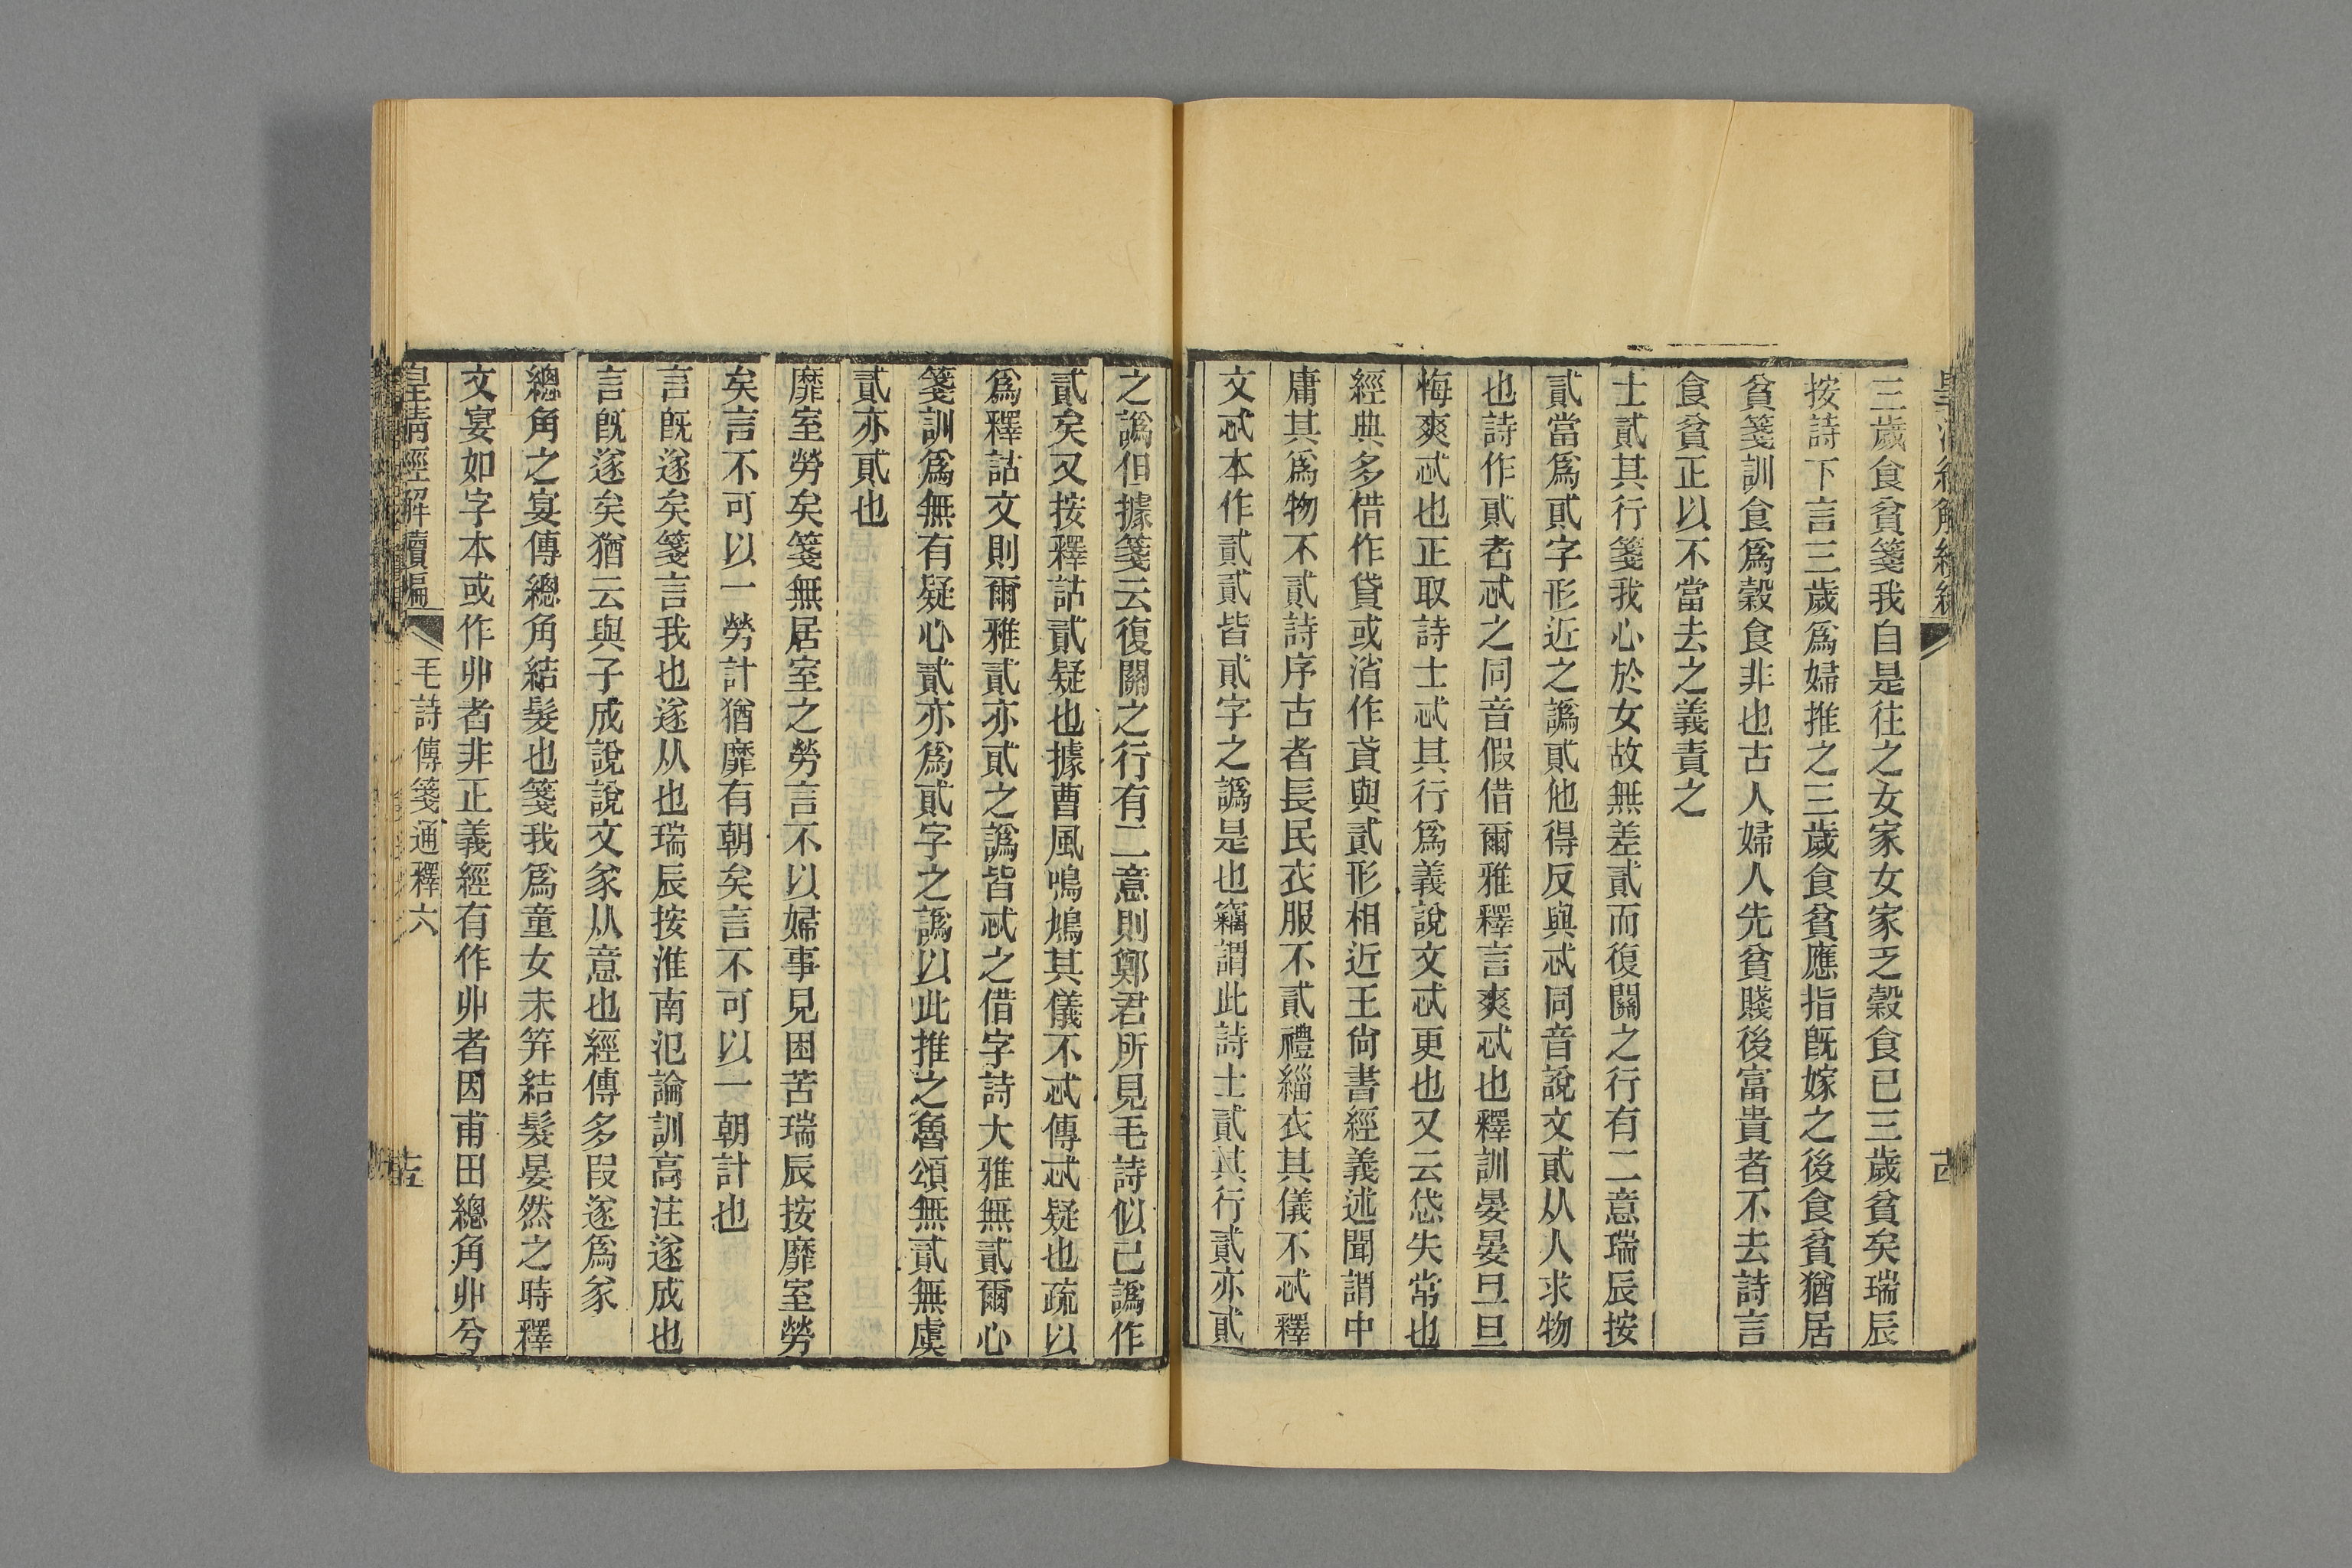 三歲食貧箋我自是往之女家女家乏穀食已三歲貧矣瑞辰
按詩下言三歲爲婦推之三歲食貧應指旣嫁之後食貧猶居
貧箋訓食爲穀食非也古人婦人先貧賤後富貴者不去詩言
食貧正以不當去之義責之
士貳其行箋我心於女故無差貳而復關之行有二意瑞辰按
貳當爲貣字形近之譌貣他得反與忒同音說文貣从人求物
也詩作貣者忒之同音假借爾雅釋言爽忒也釋訓晏晏旦旦
悔爽忒也正取詩士忒其行爲義說文忒更也又云𢘍失常也
經典多借作貸或渻作貣與貳形相近王尙書經義述聞謂中
庸其爲物不貳詩序古者長民衣服不貳禮緇衣其儀不忒釋
文忒本作貳貳皆貣字之譌是也竊謂此詩士貳其行貳亦貣
之譌但據箋云復關之行有二意則鄭君所見毛詩似已譌作
貳矣又按釋詁貳疑也據曹風鳲鳩其儀不忒傳忒疑也疏以
爲釋詁文則爾雅貳亦貣之譌皆忒之借字詩大雅無貳爾心
箋訓爲無有疑心貳亦爲貣字之譌以此推之魯頌無貳無虞
貳亦貣也
靡室勞矣箋無居室之勞言不以婦事見困苦瑞辰按靡室勞
矣言不可以一勞計猶靡有朝矣言不可以一朝計也
言旣遂矣箋言我也遂从也瑞辰按淮南氾論訓高注遂成也
言旣遂矣猶云與子成說說文㒸从意也經傳多叚遂爲㒸
總角之宴傳總角結髮也箋我爲童女未筓結髮晏然之時釋
文宴如字本或作丱者非正義經有作丱者因甫田總角丱兮
皇淸經解續編
毛詩傳箋通釋六